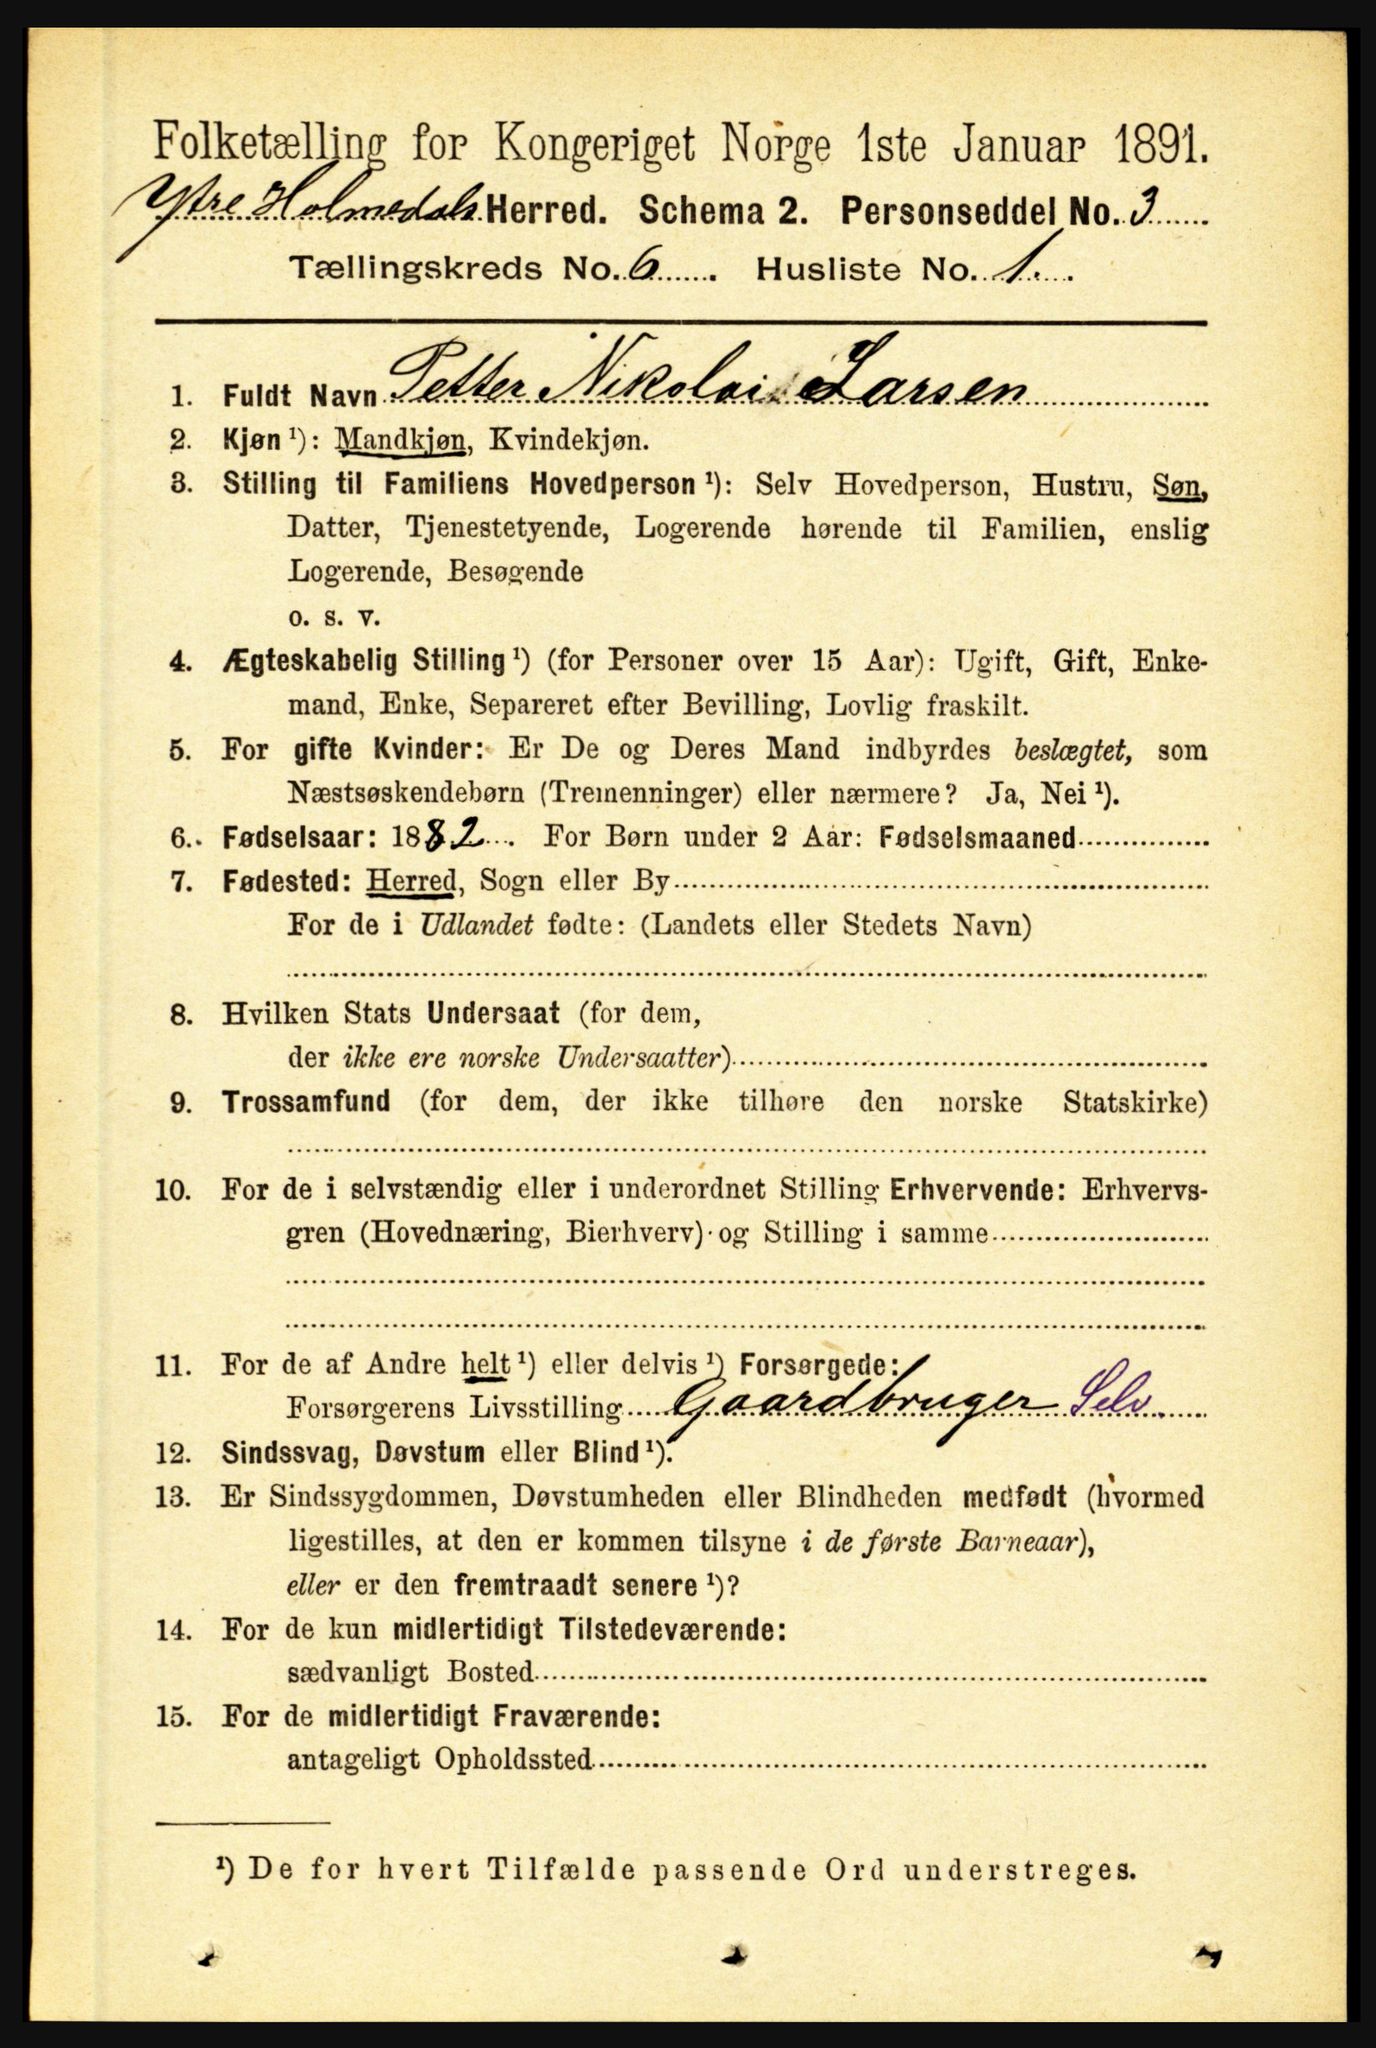 Folketælling for Kongeriget Norge 1ste Januar 1891.
Ytre Holmedals Herred. Schema 2. Personseddel No. 3
Tællingskreds No. 6. Husliste No. 1.
1. Fuldt Navn Petter Nikolai Larsen
2. Kjøn ¹): Mandkjøn, Kvindekjøn.
3. Stilling til Familiens Hovedperson ¹): Selv Hovedperson, Hustru, Søn,
Datter, Tjenestetyende, Logerende hørende til Familien, enslig
Logerende, Besøgende
o. s. v.
4. Ægteskabelig Stilling ¹) (for Personer over 15 Aar): Ugift, Gift, Enke-
mand, Enke, Separeret efter Bevilling, Lovlig fraskilt.
5. For gifte Kvinder: Er De og Deres Mand indbyrdes beslægtet, som
Næstsøskendebørn (Tremenninger) eller nærmere? Ja, Nei ¹).
6. Fødselsaar: 1882. For Børn under 2 Aar: Fødselsmaaned
7. Fødested: Herred, Sogn eller By
For de i Udlandet fødte: (Landets eller Stedets Navn)
8. Hvilken Stats Undersaat (for dem,
der ikke ere norske Undersaatter)
9. Trossamfund (for dem, der ikke tilhøre den norske Statskirke)
10. For de i selvstændig eller i underordnet Stilling Erhvervende: Erhvervs-
gren (Hovednæring, Bierhverv) og Stilling i samme
11. For de af Andre helt ¹) eller delvis ¹) Forsørgede:
Forsørgerens Livsstilling Gaardbruger Selv.
12. Sindssvag, Døvstum eller Blind ¹).
13. Er Sindssygdommen, Døvstumheden eller Blindheden medfødt (hvormed
ligestilles, at den er kommen tilsyne i de første Barneaar),
eller er den fremtraadt senere ¹)?
14. For de kun midlertidigt Tilstedeværende:
sædvanligt Bosted
15. For de midlertidigt Fraværende:
antageligt Opholdssted
¹) De for hvert Tilfælde passende Ord understreges.